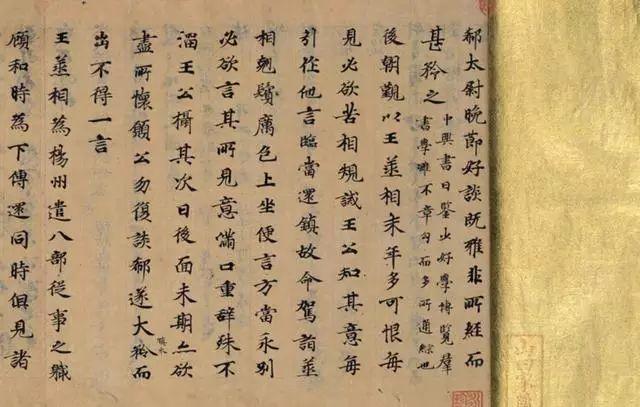 郗太尉晚節好談既雅非所經而
甚矜之
中興書曰鑒少好學博覽群
書學雖不章句而多所通綜也
後朝覲以王丞相末年多可恨每
見必欲苦相規誡王公知其意每
引作他言臨當還鎮故命駕詣丞
相翹鬢厲色上坐便言方當永別
必欲言其所見意滿口重辭殊不
溜王公攝其次曰後面未期亦欲
盡所懷願公勿復談郗遂大矜而
出不得一言
王丞相為楊州遣八部從事之職
顧和時為下傳還同時俱見諸